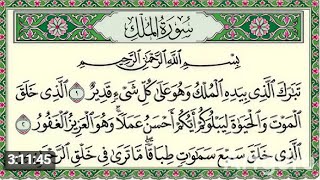 سُورَةُ المُلْكِ
بِسْمِ اللَّهِ الرَّحْمَٰنِ الرَّحِيمِ
تَبَٰرَكَ ٱلَّذِى بِيَدِهِ ٱلْمُلْكُ وَهُوَ عَلَىٰ كُلِّ شَىْءٍ قَدِيرٌ ١ ٱلَّذِى خَلَقَ
ٱلْمَوْتَ وَٱلْحَيَوٰةَ لِيَبْلُوَكُمْ أَيُّكُمْ أَحْسَنُ عَمَلًا وَهُوَ ٱلْعَزِيزُ ٱلْغَفُورُ
٢ ٱلَّذِى خَلَقَ سَبْعَ سَمَٰوَٰتٍ طِبَاقًا مَّا تَرَىٰ فِى خَلْقِ
3:11:45